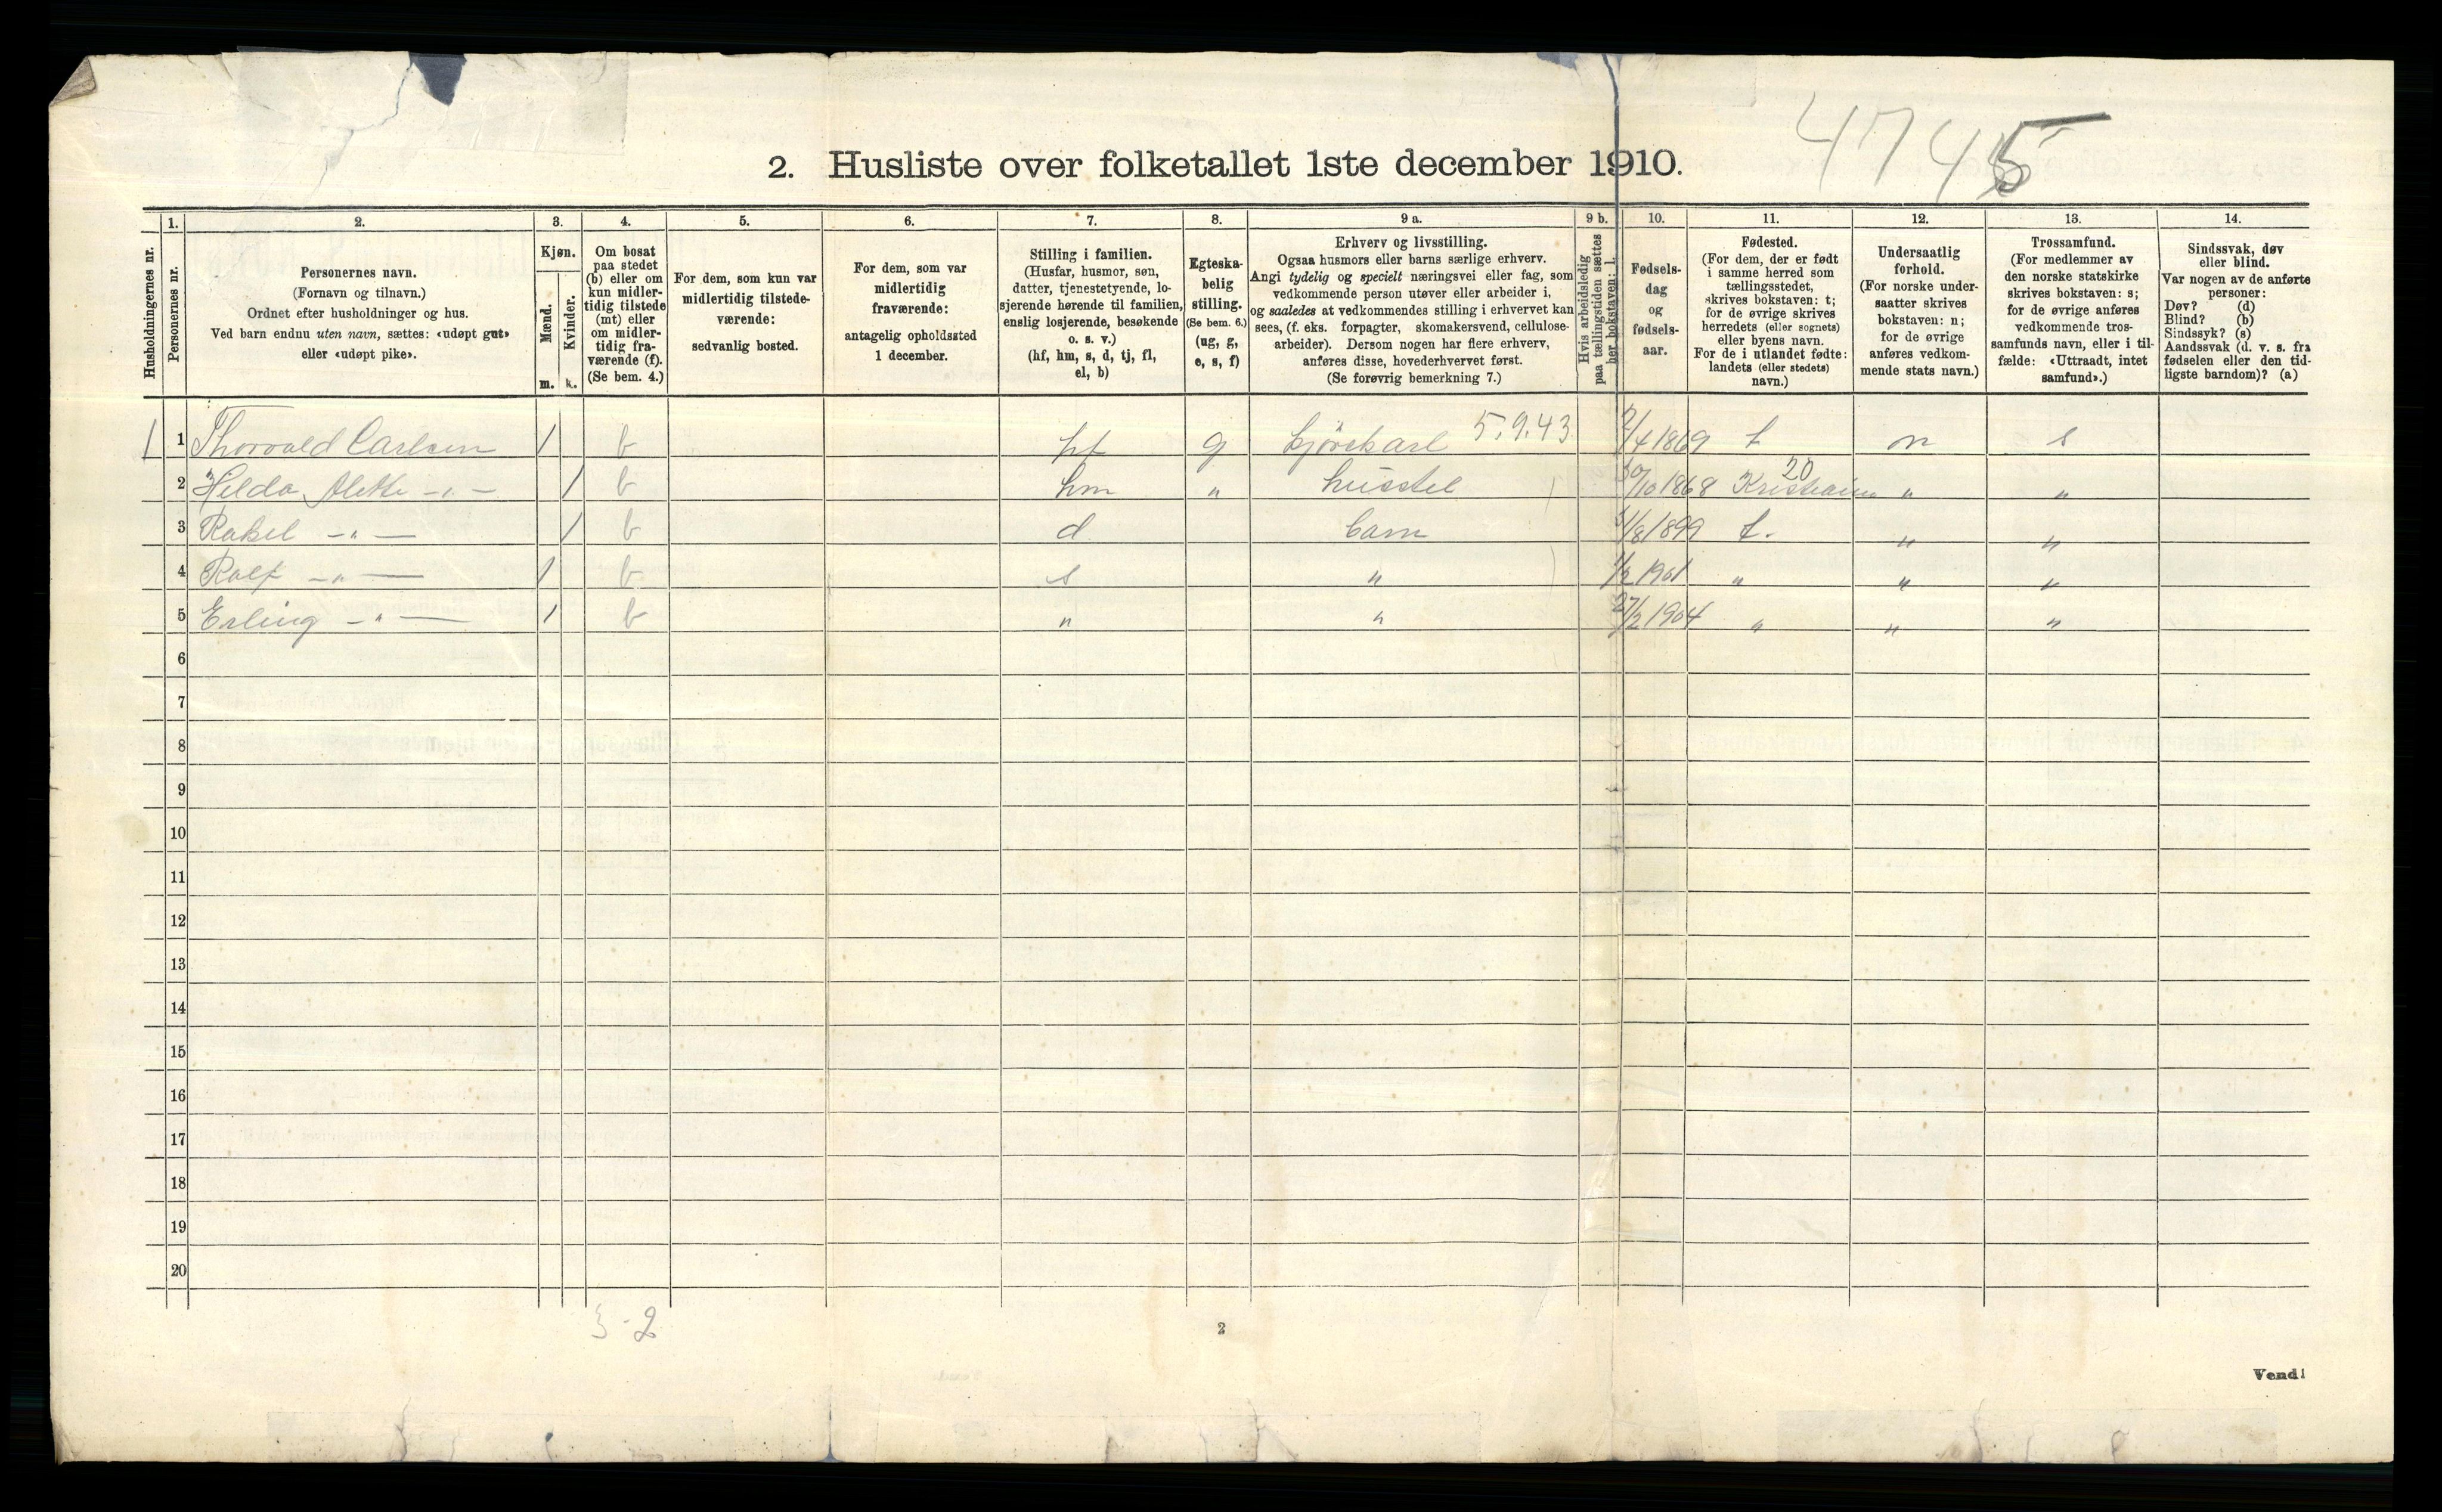 4745
2. Husliste over folketallet 1ste december 1910.
Husholdningernes nr.
1.
Personernes nr.
2.
Personernes navn.
(Fornavn og tilnavn.)
Ordnet efter husholdninger og hus.
Ved barn endnu uten navn, sættes: «udøpt gut»
eller «udøpt pike».
3.
Kjøn.
Mænd.
Kvinder.
m. k.
4.
Om bosat
paa stedet
(b) eller om
kun midler-
tidig tilstede
(mt) eller
om midler-
tidig fra-
værende (f).
(Se bem. 4.)
5.
For dem, som kun var
midlertidig tilstede-
værende:
sedvanlig bosted.
6.
For dem, som var
midlertidig
fraværende:
antagelig opholdssted
1 december.
7.
Stilling i familien.
(Husfar, husmor, søn,
datter, tjenestetyende, lo-
sjerende hørende til familien,
enslig losjerende, besøkende
o. s. v.)
(hf, hm, s, d, tj, fl,
el, b)
8.
Egteska-
belig
stilling.
(Se bem. 6.)
(ug, g,
e, s, f)
9 a.
Erhverv og livsstilling.
Ogsaa husmors eller barns særlige erhverv.
Angi tydelig og specielt næringsvei eller fag, som
vedkommende person utøver eller arbeider i,
og saaledes at vedkommendes stilling i erhvervet kan
sees, (f. eks. forpagter, skomakersvend, cellulose-
arbeider). Dersom nogen har flere erhverv,
anføres disse, hovederhvervet først.
(Se forøvrig bemerkning 7.)
9 b.
Hvis arbeidsledig
paa tællingstiden sættes
her bokstaven: l.
10.
Fødsels-
dag
og
fødsels-
aar.
11.
Fødested.
(For dem, der er født
i samme herred som
tællingsstedet,
skrives bokstaven: t;
for de øvrige skrives
herredets (eller sognets)
eller byens navn.
For de i utlandet fødte:
landets (eller stedets)
navn.)
12.
Undersaatlig
forhold.
(For norske under-
saatter skrives
bokstaven: n;
for de øvrige
anføres vedkom-
mende stats navn.)
13.
Trossamfund.
(For medlemmer av
den norske statskirke
skrives bokstaven: s;
for de øvrige anføres
vedkommende tros-
samfunds navn, eller i til-
fælde: «Uttraadt, intet
samfund».)
14.
Sindssvak, døv
eller blind.
Var nogen av de anførte
personer:
Døv? (d)
Blind? (b)
Sindssyk? (s)
Aandssvak (d. v. s. fra
fødselen eller den tid-
ligste barndom)? (a)
1 1 Thorvald Carlsen 1 b hf g kjørekarl 5.9.43 2/4 1869 t n s
2 Hilda Alette -"- 1 b hm " husstel 30/10 1868 Kristiania 20 " "
3 Rakel -"- 1 b d barn 31/8 1899 t. " "
4 Rolf -"- 1 b s " 1/2 1901 " " "
5 Erling -"- 1 b " " 27/2 1904 " " "
6
7
8
9
10
11
12
13
14
15
16
17
18
19
20
3-2
2
Vend!